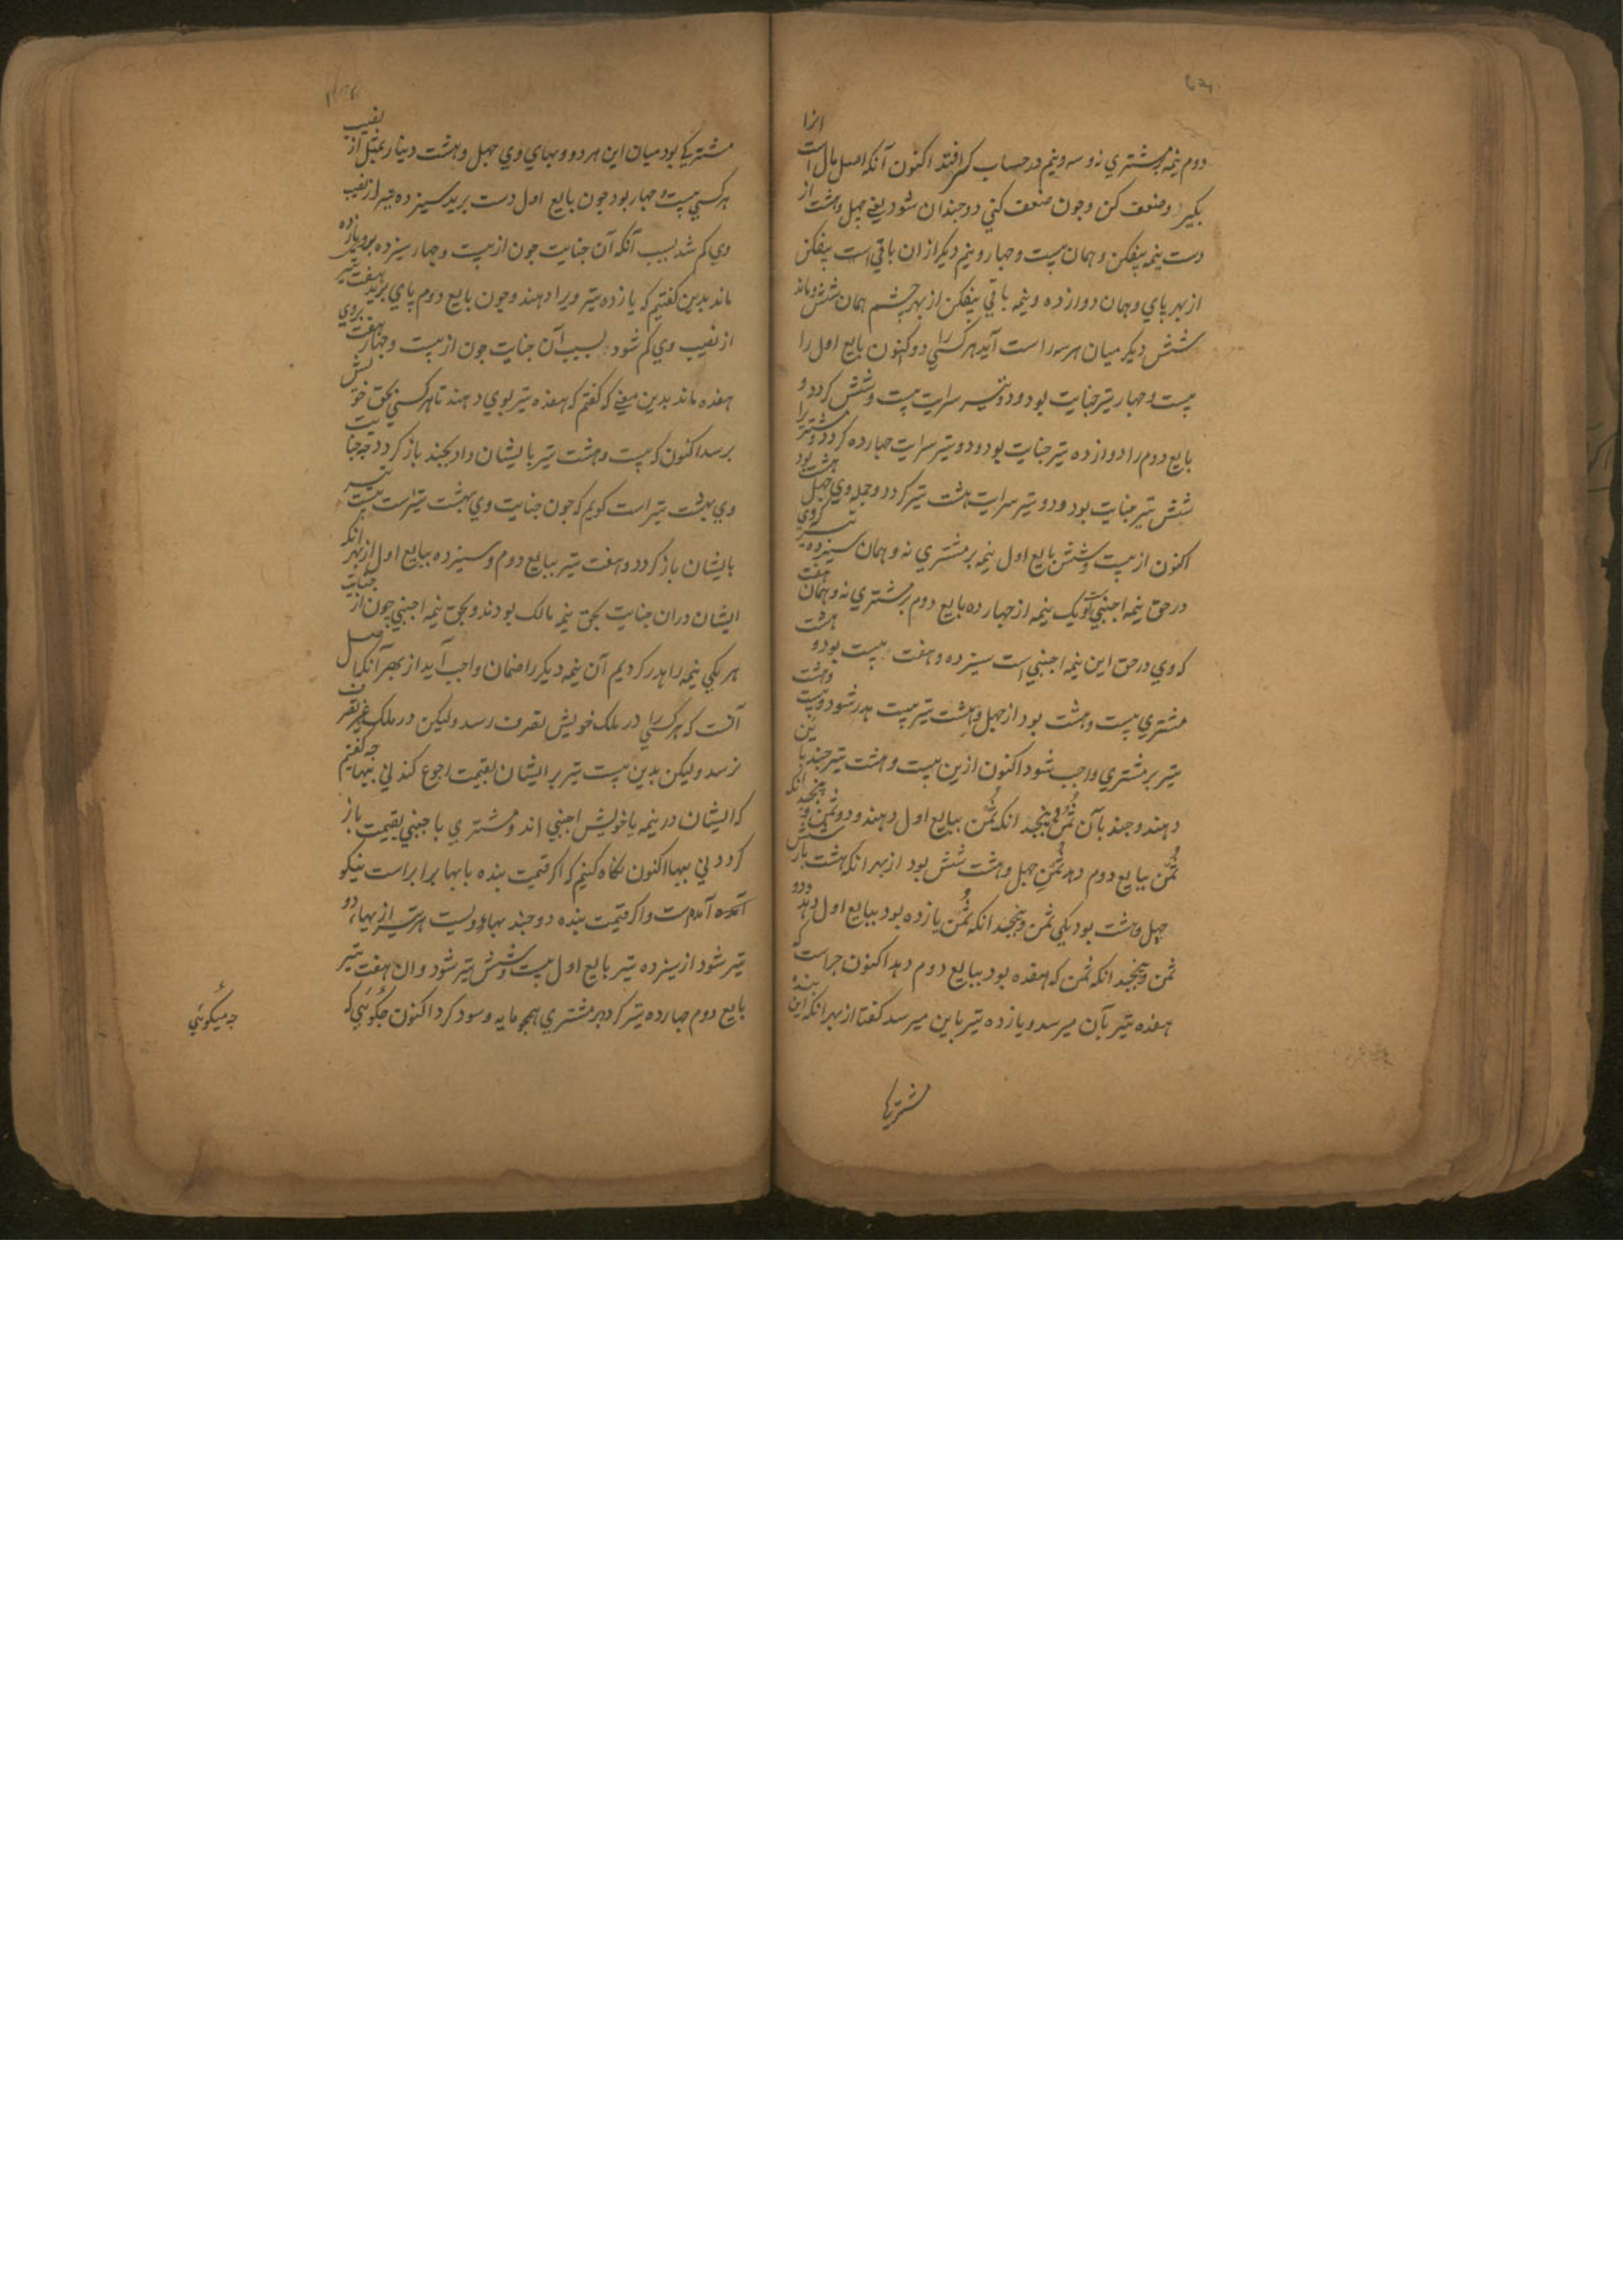 دوم نیمه بر مشتری نه و سه و نیم در حساب کسر افتد اکنون آنکه اصل مال است انرا
بکیر و ضعف کن و جون ضعف کنی دو جندان شود یعنی جهل وهشت از
دست نیمه بیفکن و همان بیست و جهار و نیم دیکر از ان باقی است بیفکن
از بهر پای و همان دوازده و نیمه باقی بیفکن از بهر جشم همان شش و ماند
شش دیکر میان هر سه راست آید هر کسی را دو اکنون بایع اول را
بیست و جهار تیر جنایت بود و دو تیر سرایت بیست و شش کردد و
بایع دوم را دوازده تیر جنایت بود و دو تیر سرایت جهارده کردد و مشتری را
شش تیر جنایت بود و دو تیر سرایت هشت تیر کردد و جمله وی جهل هشت بود
اکنون از بیست و شش بایع اول نیمه بر مشتری نه و همان سیزده تیر که وی
در حق نیمه اجنبی است و یک نیمه از جهارده بایع دوم بر مشتری نه و همان هفت
که وی در حق این نیمه اجنبی است سیزده و هفت بیست بود و هشت
مشتری بیست و هشت بود از جهل و هشت تیر بیست هدر شود و بیست وهشت
تیر بر مشتری واجب شود اکنون ازین بیست و هشت تیر جند با ین
دهند و جند بآن ثمن و پنجید انکه ثمن ببایع اول دهند و دو ثمن و پنجید انکه
ثمن ببایع دوم دهد ثمن جهل و هشت شش بود از بهر انکه هشت بار شش
جهل و هشت بود یکی ثمن و پنجید انکه ثمن یازده بود ببایع اول دهد و دو
ثمن و پنجید انکه ثمن که هفده بود ببایع دوم دهد اکنون جراست که
هفده تیر بآن میرسد و یازده تیر باین میرسد کفتا از بهر انکه این بنده
مشتریکی
مشتریکی بود میان این هر دو و بهای وی جهل و هشت دینار بمثل از نصیب
هر کسی بیست و جهار بود جون بایع اول دست برید سیزده تیر از نصیب
وی کم شد بسبب آنکه آن جنایت جون از بیست و جهار سیزده برود یازده
ماند بدین کفتیم که یازده تیر ویرا دهند و جون بایع دوم پای برید هفت تیر
از نصیب وی کم شود بسبب آن جنایت جون از بیست و جهار هفت بروی
هفده ماند بدین معنی که کفتم که هفده تیر بوی دهند تا هر کسی بحق خویش
برسد اکنون که بیست و هشت تیر بایشان داد بجند باز کردد جه جنایت
وی بهشت تیر است کویم که جون جنایت وی بهشت تیر است بیست تیر
بایشان باز کردد و هفت تیر ببایع دوم و سیزده ببایع اول از بهر انکه
ایشان دران جنایت بحق نیمه مالک بودند و بحق نیمه اجنبی جون از جنایت
هر یکی نیمه را هدر کردیم آن نیمه دیکر را ضمان واجب آید از بهر آنکه اصل
آنست که هر کسی را در ملک خویش تصرف رسد ولیکن در ملک غیر تصرف
نرسد ولیکن بدین بیست تیر بر ایشان بقیمت رجوع کند نی ببها جه کفتیم
که ایشان در نیمه یا خویش اجنبی اند و مشتری با جنبی بقیمت باز
کردد نی ببها اکنون نکاه کنیم که اکر قیمت بنده با بها برابر است نیکو
آمده است و اکر قیمت بنده دو جند بهاء ویست هر تیر از بها دو
تیر شود از سیزده تیر بایع اول بیست و شش تیر شود و ان هفت تیر
بایع دوم جهارده تیر کردد بر مشتری همجو مایه و سود کرد اکنون جکوئی که
جه میکوئی